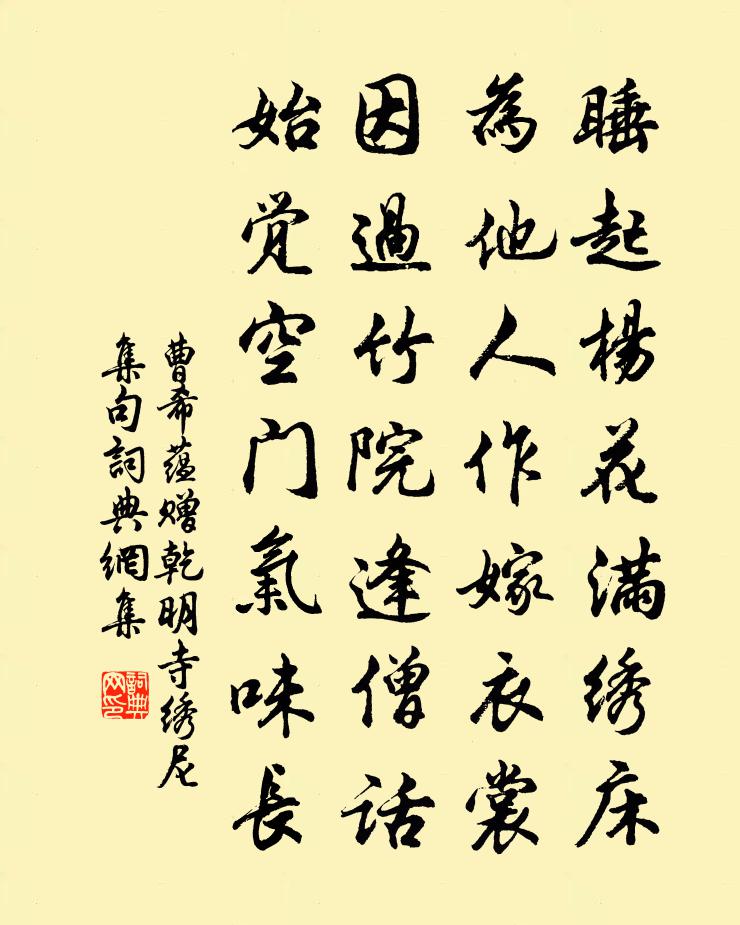 睡起楊花滿绣床
為他人作嫁衣裳
因過竹院逢僧話
始觉空门氣味長
曹希蕴赠乾明寺绣尼
集句詞典網集
詞典网印